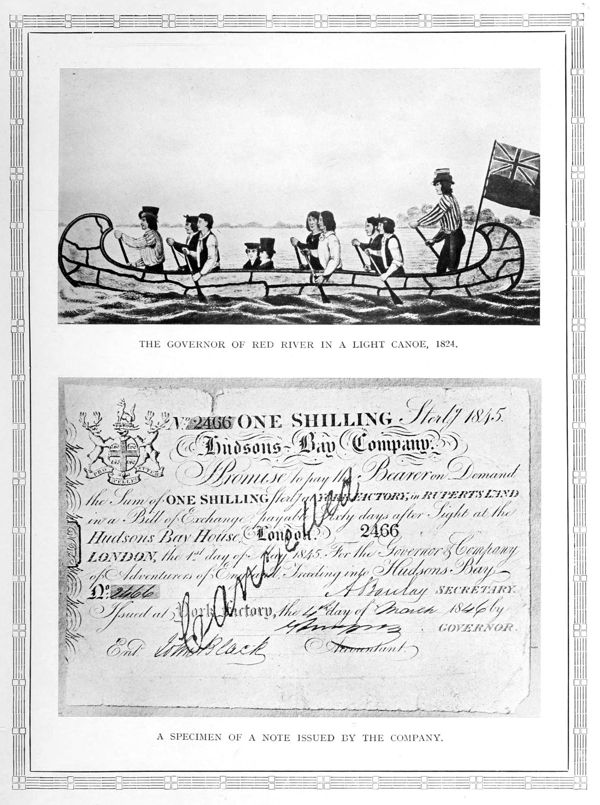 THE GOVERNOR OF RED RIVER IN A LIGHT CANOE, 1824.
No. 2466 ONE SHILLING Sterlg 1845.
Hudsons-Bay Company.
I Promise to pay the Bearer on Demand
the Sum of ONE SHILLING Sterlg at YORK FACTORY, in RUPERTS LAND
in a Bill of Exchange payable Sixty days after Sight at the
Hudsons Bay House, London. 2466
LONDON, the 1st day of May 1845. For the Governor & Company
of Adventurers of England, Trading into Hudsons Bay
No. 2466 A Barclay SECRETARY.
Issued at York Factory, the 4th day of March 1846 by
GOVERNOR.
Entd John Black Accountant
Cancelled
A SPECIMEN OF A NOTE ISSUED BY THE COMPANY.